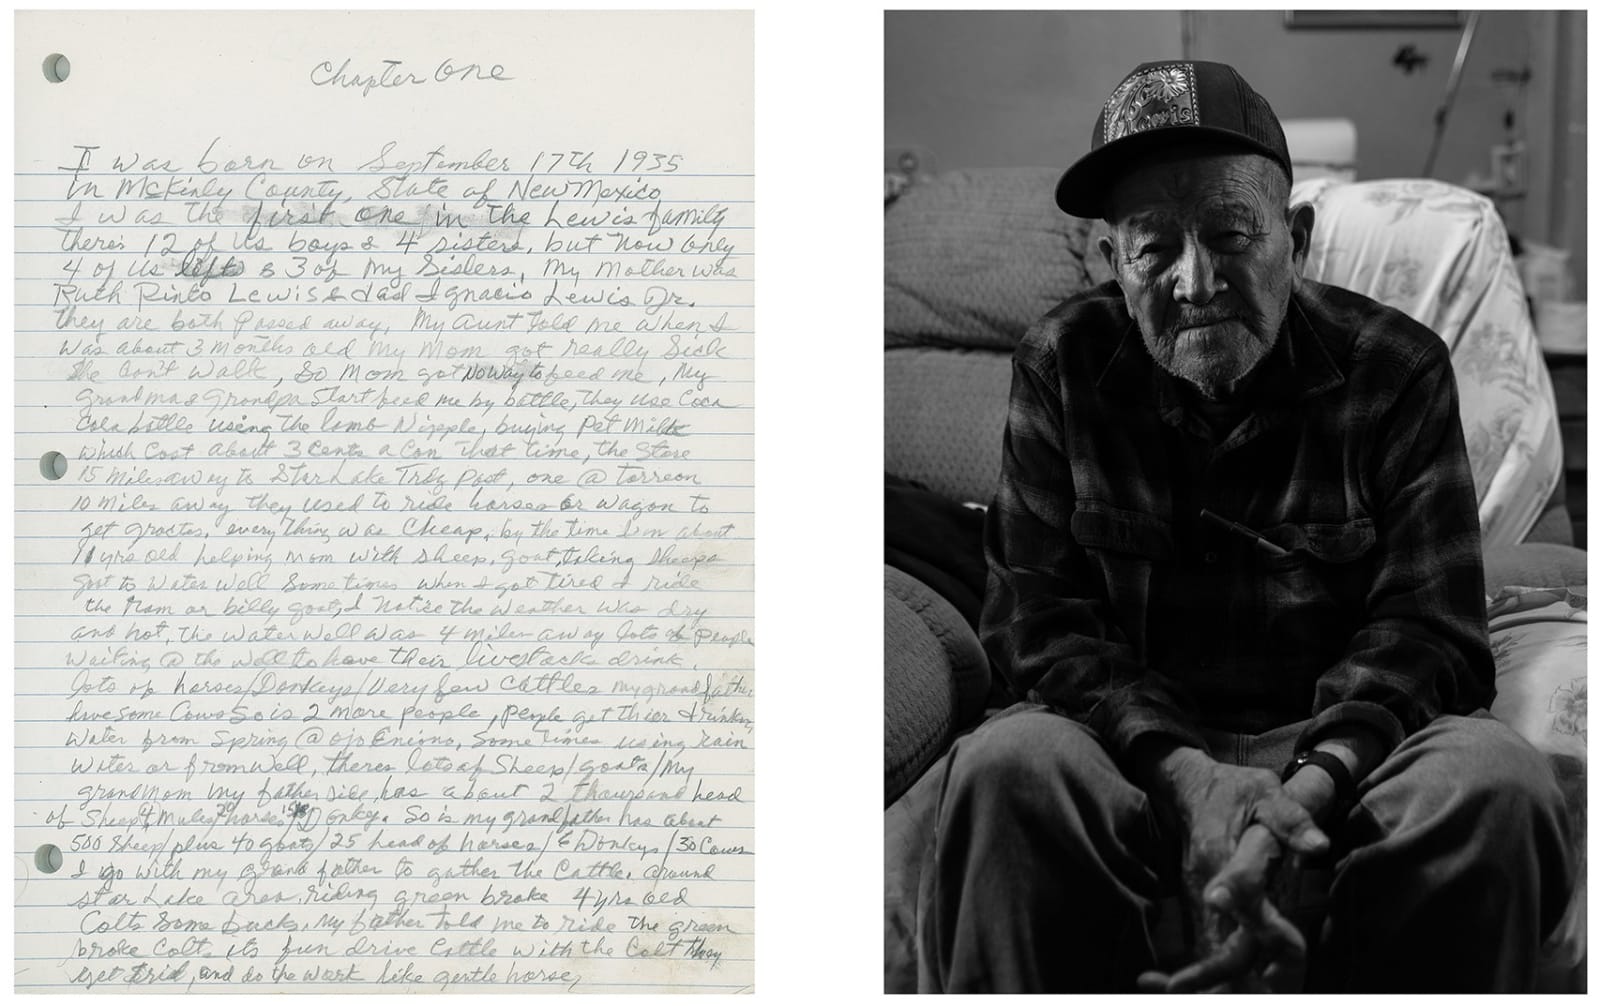 Chapter One
I was born on September 17th 1935
in McKinly County, State of New Mexico
I was the first one in the Lewis family
there's 12 of us boys & 4 sisters, but now only
4 of us left & 3 of my Sisters, My Mother was
Ruth Pinto Lewis & dad Ignacio Lewis Jr.
they are both passed away, My Aunt told me when I
was about 3 months old my Mom got really Sick
She Can't Walk, So Mom got No way to feed me, My
Grandma & Grandpa Start feed me by bottle, they use Coca
Cola bottle using the lamb Nipple, buying Pet Milk
which Cost about 3 cents a Can that time, the Store
15 miles away to Star Lake Trdg Post, one @ Torreon
10 miles away they used to ride horses or wagon to
get everything was Cheap, by the time I'm about
11 yrs old helping Mom with sheep, goat, taking sheeps
goat to water well Sometimes when I got tired I ride
the Ram or billy goat, I notice the weather was dry
and hot, the water well was 4 miles away lots of people
waiting @ the well to have their livestocks drink,
lots of horses/Donkeys/Very few Cattles my grandfather
have some Cows So is 2 more people, people get thier drinkin,
water from Spring @ Ojo Enciono, Some times using rain
water or from well, theres lots of Sheep/goats/My
grandmom my father side, has about 2 thousand head
of Sheep 4 Mules 20 horses Donky. So is my grandfather has about
500 Sheep plus 40 goats/25 head of horses/6 Donkys/30 Cows
I go with my grand father to gather the Cattle. around
Star Lake area, riding green broke 4 yrs old
Colts Some bucks, My father told me to ride the green
broke Colt, its fun drive Cattle with the Colt they
get trid, and do the work like gentle horse,
Lewis